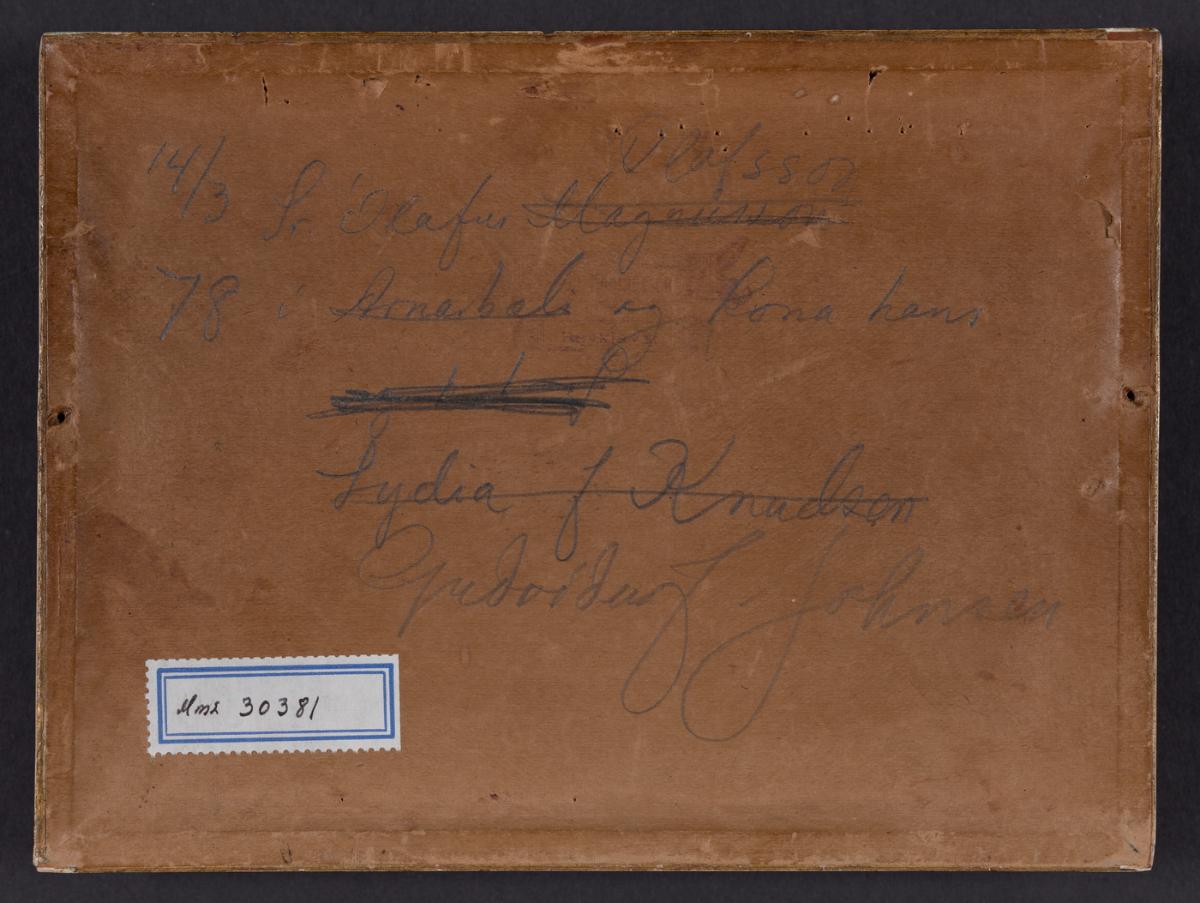 Ólafsson
14/3 Sr Ólafur Magnússon
78 í Arnarbæli og kona hans
Lydia f Knudsen
Guðríður Johnsen
Mms 30381